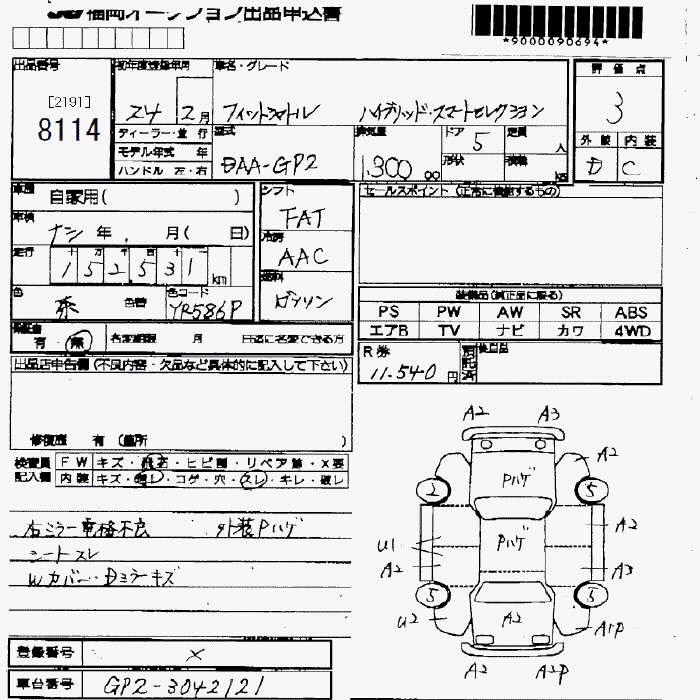 福岡オークション出品申込書
*9000090694*
出品番号
[2191]
8114
初年度登録年月
24 2月
車名・グレード
フィットシャトル ハイブリッド・スマートセレクション
評価点
3
外装 内装
D C
ディーラー・並行
モデル年式 年
ハンドル 左・右
型式
DAA-GP2
排気量
1300 00
ドア 5
形状
定員 人
積載 kg
車歴 自家用( )
車検
ナシ 年 月( 日)
走行
十 万 千
152531 km
色 茶 色替
色コード
YR586P
シフト
FAT
冷房
AAC
燃料
ガソリン
セールスポイント(正常に機能するもの)
装備品(純正品に限る)
PS PW AW SR ABS
エアB TV ナビ カワ 4WD
保証書
有・無
名変期限 月 日迄に名変できる方
R券
11.540円
後日品
出品店申告欄(不良内容・欠品など具体的に記入して下さい)
修復歴 有(箇所 )
検査員記入欄
FW キズ・飛石・ヒビ割・リペア跡・X要
内装 キズ・汚レ・コゲ・穴・スレ・キレ・破レ
右ミラー電格不良 外装Pハゲ
シートスレ
Wカバー・Dミラーキズ
登録番号 ×
車台番号 GP2-3042121
A2 A3
A2
Pハゲ
2 5
A2
Pハゲ
U1
A2 A3
5 5
U2 A2 A1P
A2 A2P